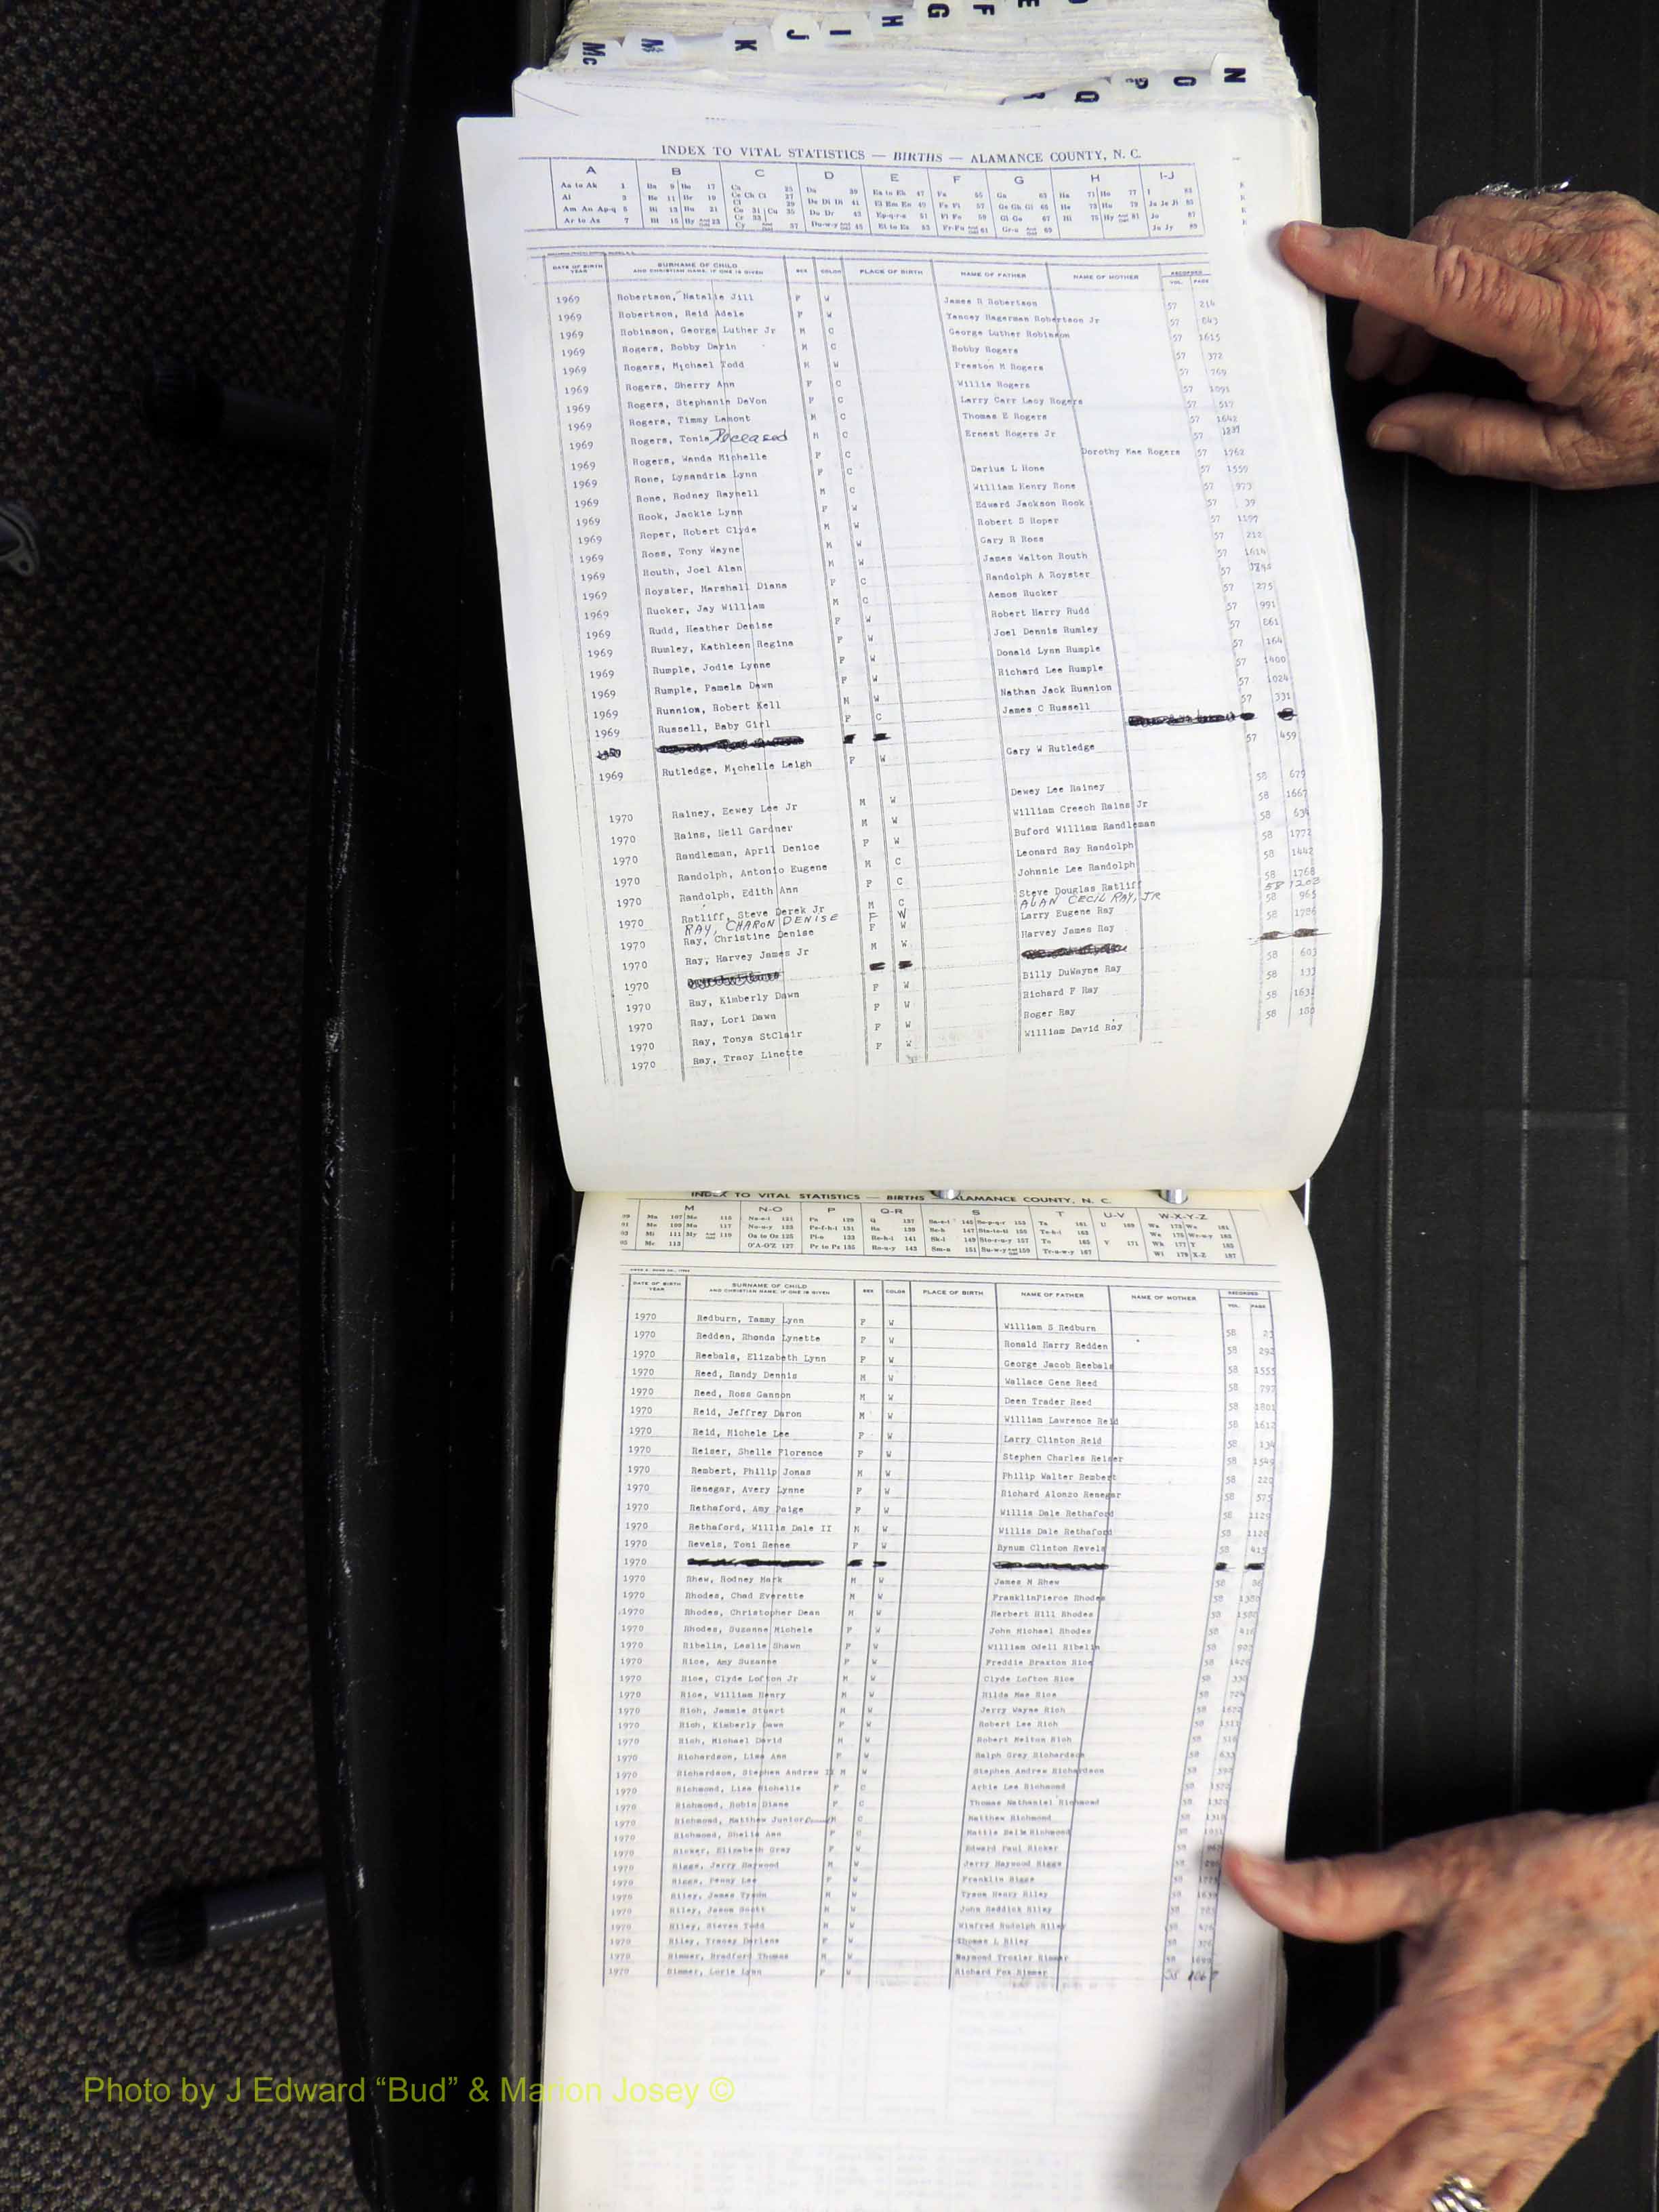 E F G H I J K M Mc
N O P Q R
INDEX TO VITAL STATISTICS — BIRTHS — ALAMANCE COUNTY, N. C.
A B C D E F G H I-J
DATE OF BIRTH YEAR SURNAME OF CHILD AND CHRISTIAN NAME, IF ONE IS GIVEN SEX COLOR PLACE OF BIRTH NAME OF FATHER NAME OF MOTHER RECORDED VOL. PAGE
1969 Robertson, Natalie Jill F W James R Robertson 57 214
1969 Robertson, Reid Adele F W Yancey Hagerman Robertson Jr 57 843
1969 Robinson, George Luther Jr M C George Luther Robinson 57 1615
1969 Rogers, Bobby Darin M C Bobby Rogers 57 372
1969 Rogers, Michael Todd M W Preston M Rogers 57 769
1969 Rogers, Sherry Ann F C Willie Rogers 57
1969 Rogers, Stephanie DeVon F C Larry Carr Lacy Rogers 57 517
1969 Rogers, Timmy Lamont M C Thomas E Rogers 57 1642
1969 Rogers, Tonia Deceased M C Ernest Rogers Jr 57 1237
1969 Rogers, Wanda Michelle F C Dorothy Mae Rogers 57 1762
1969 Rone, Lysandria Lynn F C Darius L Rone 57 1559
1969 Rone, Rodney Raynell M C William Henry Rone 57 973
1969 Rook, Jackie Lynn F W Edward Jackson Rook 57 39
1969 Roper, Robert Clyde M W Robert S Roper 57
1969 Ross, Tony Wayne M W Gary R Ross 57 212
1969 Routh, Joel Alan M W James Walton Routh 57 1614
1969 Royster, Marshall Diana F C Randolph A Royster 57
1969 Rucker, Jay William M C Aemos Rucker 57 275
1969 Rudd, Heather Denise F W Robert Harry Rudd 57 991
1969 Rumley, Kathleen Regina F W Joel Dennis Rumley 57 861
1969 Rumple, Jodie Lynne F W Donald Lynn Rumple 57 164
1969 Rumple, Pamela Dawn F W Richard Lee Rumple 57 1400
1969 Runnion, Robert Kell M W Nathan Jack Runnion 57 1024
1969 Russell, Baby Girl F C James C Russell 57 331
1969 Rutledge, Michelle Leigh F W Gary W Rutledge 57 459
1970 Rainey, Eewey Lee Jr M W Dewey Lee Rainey 58 629
1970 Rains, Neil Gardner M W William Creech Rains Jr 58 1667
1970 Randleman, April Denice F W Buford William Randleman 58 634
1970 Randolph, Antonio Eugene M C Leonard Ray Randolph 58 1772
1970 Randolph, Edith Ann F C Johnnie Lee Randolph 58 1442
1970 Ratliff, Steve Derek Jr M C Steve Douglas Ratliff 58 1768
RAY, CHARON DENISE F W ALAN CECIL RAY, JR 58 1203
1970 Ray, Christine Denise F W Larry Eugene Ray 58 965
1970 Ray, Harvey James Jr M W Harvey James Ray 58 1786
1970
1970 Ray, Kimberly Dawn F W Billy DuWayne Ray 58 603
1970 Ray, Lori Dawn F W Richard F Ray 58 133
1970 Ray, Tonya StClair F W Roger Ray 58 1631
1970 Ray, Tracy Linette F W William David Ray 58 180
INDEX TO VITAL STATISTICS — BIRTHS — ALAMANCE COUNTY, N. C.
M N-O P Q-R S T U-V W-X-Y-Z
DATE OF BIRTH YEAR SURNAME OF CHILD AND CHRISTIAN NAME, IF ONE IS GIVEN SEX COLOR PLACE OF BIRTH NAME OF FATHER NAME OF MOTHER RECORDED VOL. PAGE
1970 Redburn, Tammy Lynn F W William S Redburn 58 23
1970 Redden, Rhonda Lynette F W Ronald Harry Redden 58 292
1970 Reebals, Elizabeth Lynn F W George Jacob Reebals 58 1555
1970 Reed, Randy Dennis M W Wallace Gene Reed 58 797
1970 Reed, Ross Gannon M W Deen Trader Reed 58 1801
1970 Reid, Jeffrey Daron M W William Lawrence Reid 58 1612
1970 Reid, Michele Lee F W Larry Clinton Reid 58 134
1970 Reiser, Shelle Florence F W Stephen Charles Reiser 58 1549
1970 Rembert, Philip Jonas M W Philip Walter Rembert 58 220
1970 Renegar, Avery Lynne F W Richard Alonzo Renegar 58 575
1970 Rethaford, Amy Paige F W Willis Dale Rethaford 58 1129
1970 Rethaford, Willis Dale II M W Willis Dale Rethaford 58 1128
1970 Revels, Toni Renee F W Bynum Clinton Revels 58 415
1970
1970 Rhew, Rodney Mark M W James M Rhew 58
1970 Rhodes, Chad Everette M W FranklinPierce Rhodes 58 1380
1970 Rhodes, Christopher Dean M W Herbert Hill Rhodes 58 1580
1970 Rhodes, Suzanne Michele F W John Michael Rhodes 58 416
1970 Ribelin, Leslie Shawn F W William Odell Ribelin 58 902
1970 Rice, Amy Suzanne F W Freddie Braxton Rice 58 1426
1970 Rice, Clyde Lofton Jr M W Clyde Lofton Rice 58 330
1970 Rice, William Henry M W Hilda Mae Rice 58 724
1970 Rich, Jammie Stuart M W Jerry Wayne Rich 58
1970 Rich, Kimberly Dawn F W Robert Lee Rich 58
1970 Rich, Michael David M W Robert Melton Rich 58
1970 Richardson, Lisa Ann F W Ralph Gray Richardson 58 633
1970 Richardson, Stephen Andrew II M W Stephen Andrew Richardson 58
1970 Richmond, Lisa Michelle F C Archie Lee Richmond 58
1970 Richmond, Robin Diane F C Thomas Nathaniel Richmond 58 1320
1970 Richmond, Matthew Junior M C Matthew Richmond 58 1318
1970 Richmond, Shelia Ann F C Mattie Richmond 58
1970 Ricker, Elizabeth Gray F W Edward Paul Ricker 58
1970 Riggs, Jerry Haywood M W Jerry Haywood Riggs 58
1970 Riggs, Penny Lee F W Franklin Riggs 58
1970 Riley, James Tyson M W Tyson Henry Riley 58
1970 Riley, Jason Scott M W John Reddick Riley 58
1970 Riley, Steven Todd M W Winfred Rudolph Riley 58
1970 Riley, Tracey Darlene F W Thomas L Riley 58
1970 Rimmer, Bradford Thomas M W Raymond Troxler Rimmer 58
1970 Rimmer, Lorie Lynn F W Richard Fox Rimmer 58
Photo by J Edward “Bud” & Marion Josey ©